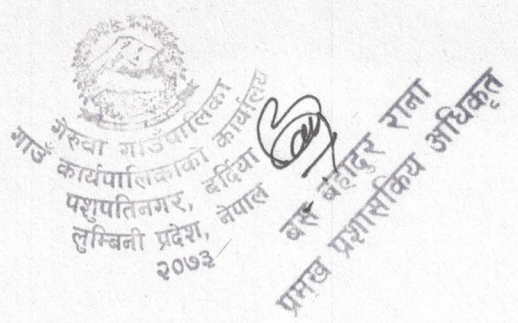 गेरुवा गाउँपालिका
गाउँ कार्यपालिकाको कार्यालय
पशुपतिनगर, बर्दिया
लुम्बिनी प्रदेश, नेपाल
२०७३
बस बहादुर राना
प्रमुख प्रशासकिय अधिकृत